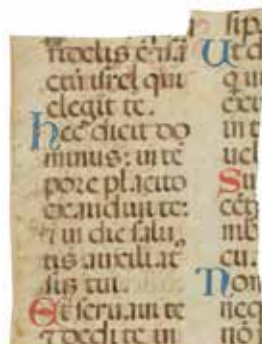 fidelis ē. ⁊ sc̄
ctū isrel qui
elegit te.
hec dicit do
minus: in tē
pore placito
exaudiui te:
⁊ in die salu
tis auxiliat
sus tui.
Et seruaui te
⁊ dedi te in
sip
Ut
q
in t
uel
Su
ceg
mb
cu.
Non
neq
nō